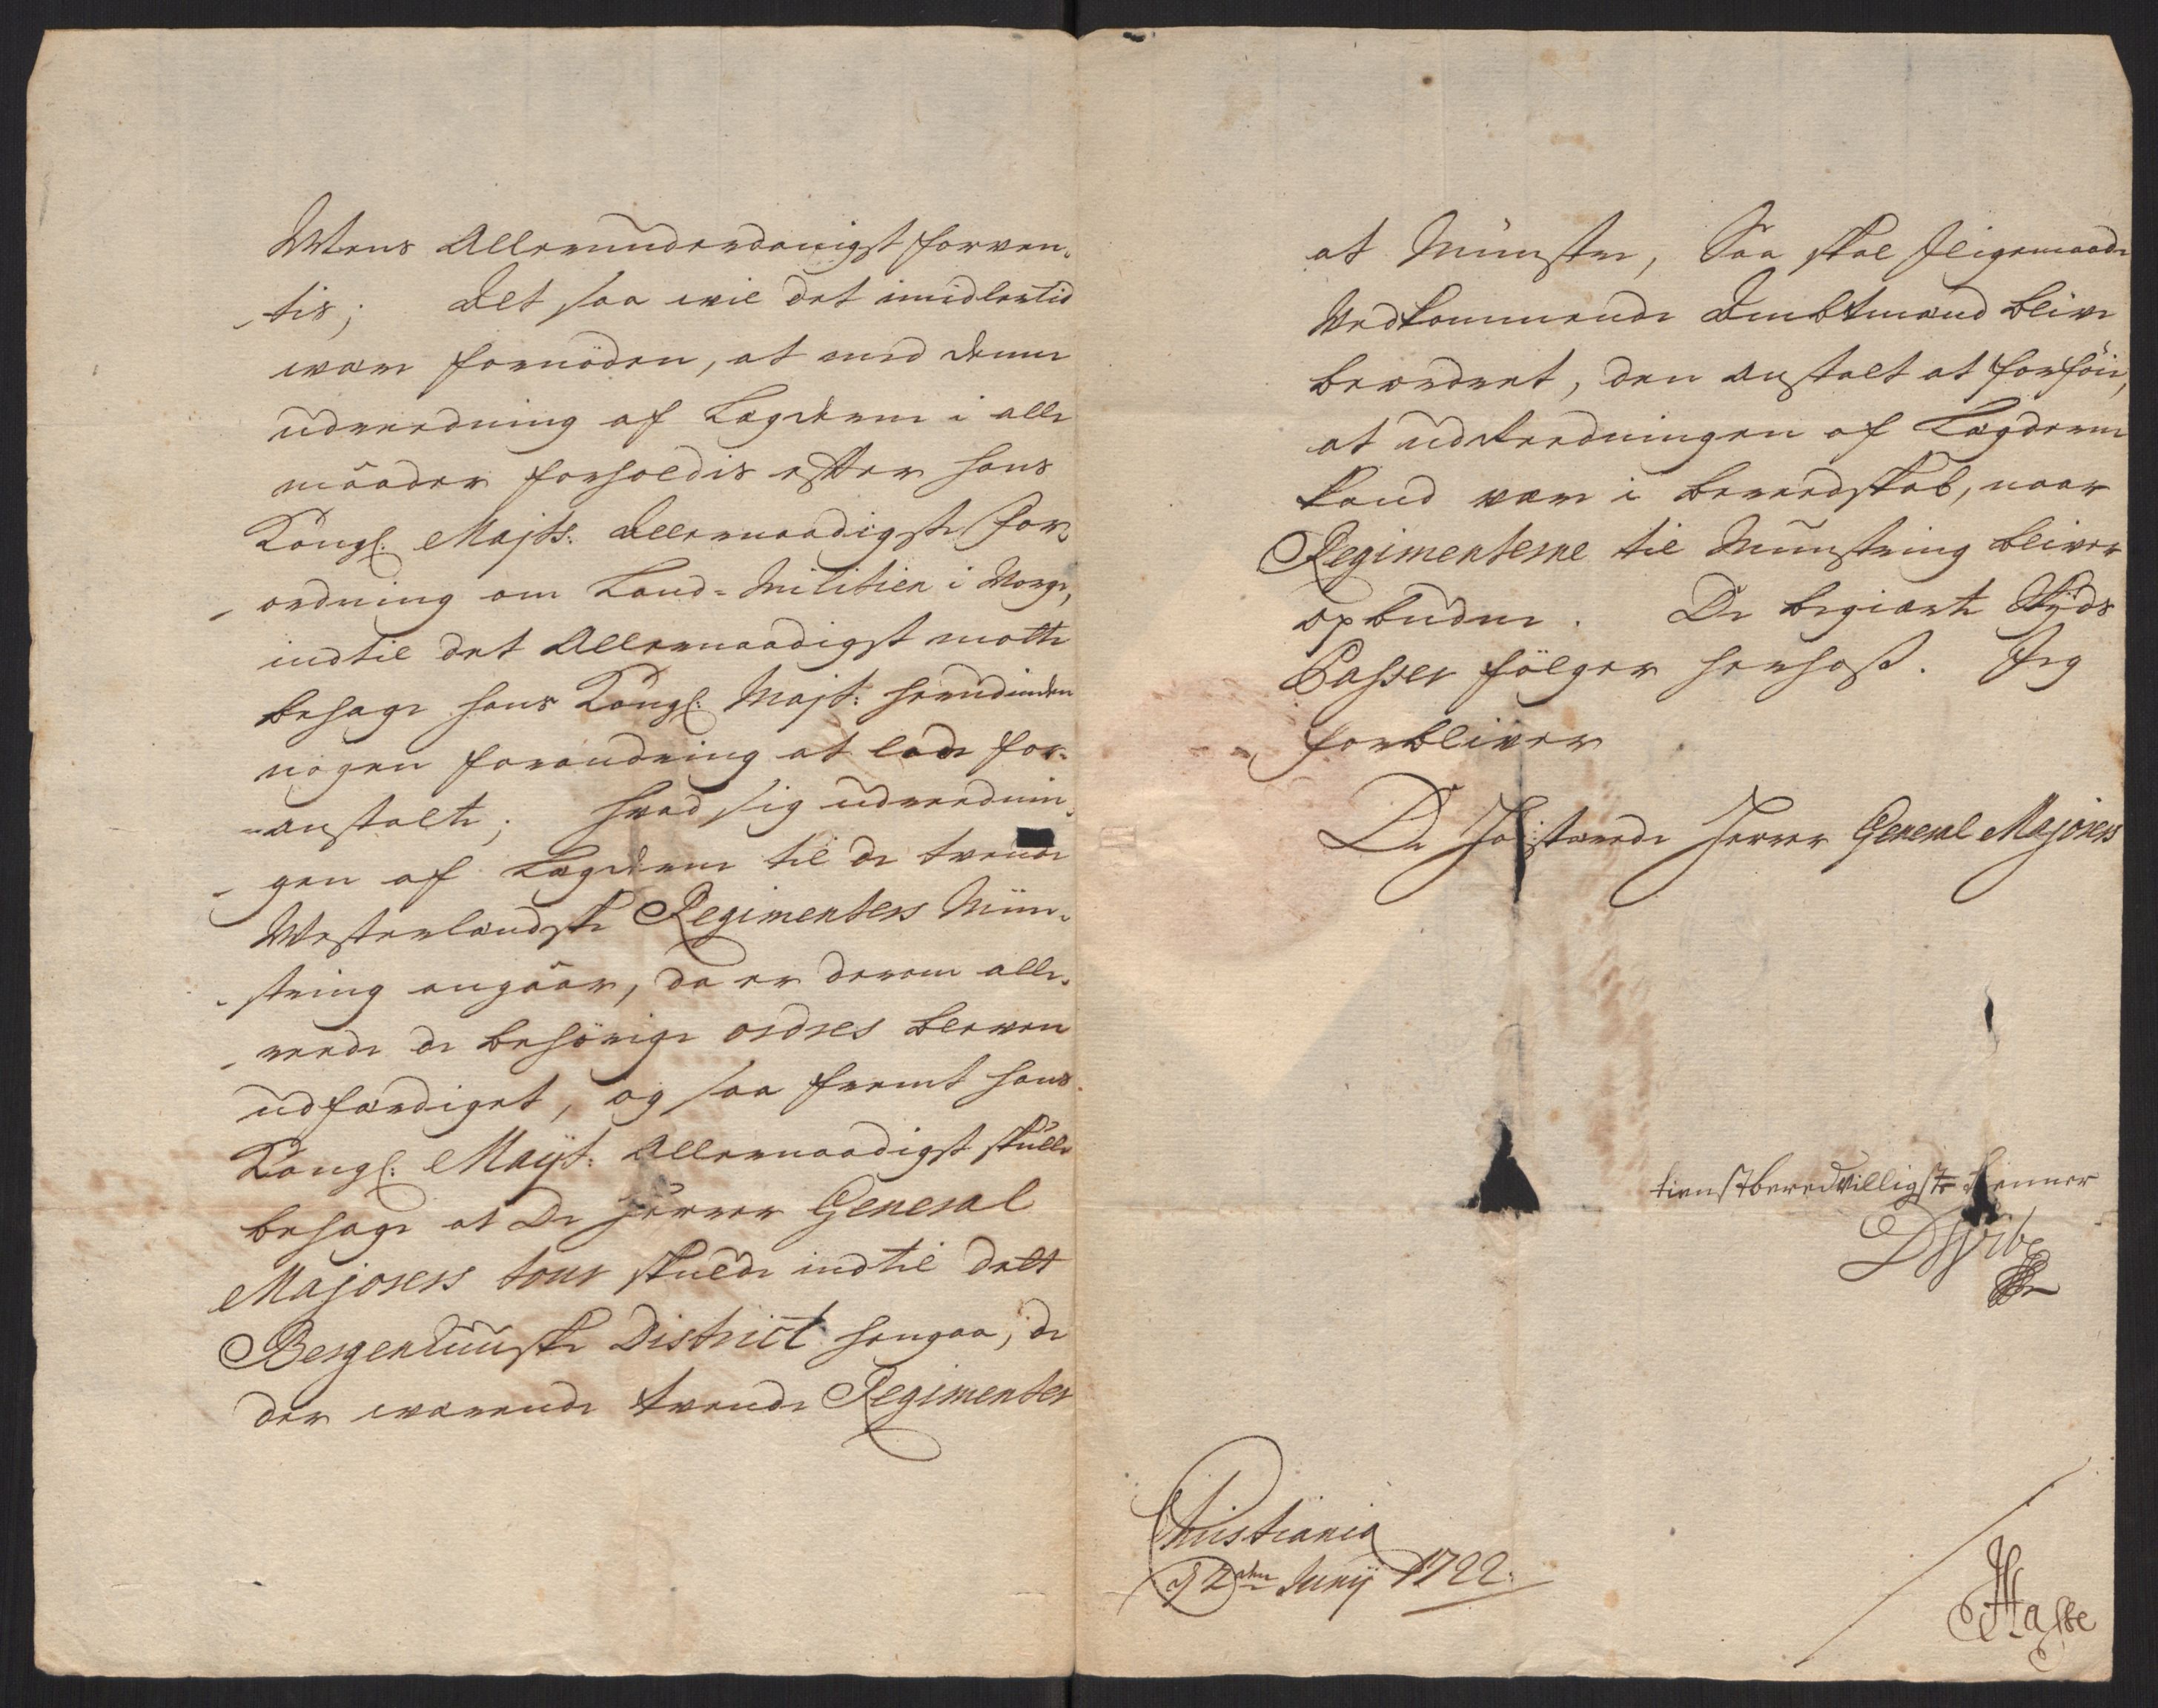 Wtens Allerunderdanigst forven-
-tis; Alt saa wil det imidlertid
være fornöden, at med denne
udreedning af Lægderne i alle
maader forholdis efter hans
Kongl: Majts: Allernaadigste For-
-ordning om Land-Militien i Norge,
indtil det Allernaadigst motte
behage hans Kongl: Majt: herudinden
nogen forandring at lade for-
-anstalte; Hvad sig udreednin-
-gen af Lægderne til de tvende
Westerlandske Regimenters Mün-
-string angaar, da er derom alle-
-rede de behörige ordres bleven
udfærdiget, og saa fremt hans
Kongl: Mayt: Allernaadigst skulle
behage at De Herrer General
Majorers tour skulde indtil dett
Bergenhuusske District hengaa, de
der værende tvende Regimenter
at Münstre, Saa skal ligemaade
Vedkommende Ambtmænd blive
beordret, den anstalt at forföie,
at udreedningen af Lægderne
kand være i bereedskab, naar
Regimenterne til Münstring bliver
opbuden. De begierte Skyds
Passer fölger herhoß. Jeg
forbliver
De Höistærede Herrer General Majorers
tienstberedvilligste tienner
DWibe
Christiania
d 2den Junij 1722.